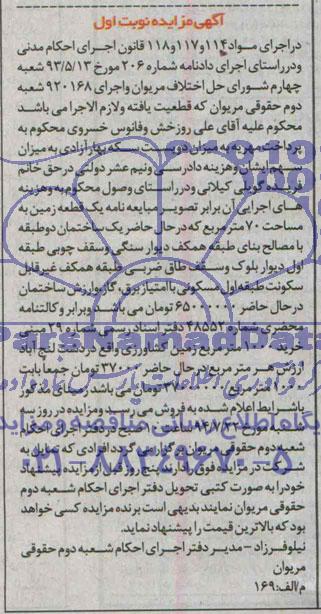 آگهی مزایده نوبت اول
در اجرای مواد ۱۱۴و۱۱۷و۱۱۸ قانون اجرای احکام مدنی
ودر راستای اجرای دادنامه شماره ۲۰۶ مورخ ۹۳/۵/۱۳ شعبه
چهارم شورای حل اختلاف مریوان واجرای ۹۲۰۱۶۸ شعبه
دوم حقوقی مریوان که قطعیت یافته ولازم الاجرا می باشد
محکوم علیه آقای علی روز خش وفانوس خسروی محکوم به
پرداخت مهریه به میزان دویست سکه بهار آزادی به میزان
سهم ایشان وهزینه دادرسی ونیم عشر دولتی در حق خانم
فریده گویلی کیلانی ودر راستای وصول محکوم به وهزینه
های اجرایی آن برابر تصویر مبایعه نامه یک قطعه زمین به
مساحت ۷۰ متر مربع که در حال حاضر یک ساختمان دو طبقه
با مصالح بنای طبقه همکف دیوار سنگی وسقف چوبی طبقه
اول دیوار بلوک وسقف طاق ضربی طبقه همکف غیر قابل
سکونت طبقه اول مسکونی با امتیاز برق، گاز وارزش ساختمان
در حال حاضر تومان می باشد وبرابر وکالتنامه
محضری شماره ۴۸۵۵۲ دفتر اسناد رسمی شماره ۲۹ مبنی
خرید متر مربع زمین کشاورزی واقع در دشت لنج آباد
ارزش هر متر مربع در حال حاضر تومان جمعا بابت
متر مربع تومان می باشد زمینای مذکور
با شرایط اعلام شده به فروش می رسد ومزایده در روز سه
شنبه مورخ ساعت ۱۰ صبح در دفتر اجرای احکام
شعبه دوم حقوقی مریوان برگزار می گردد افرادی که تمایل به
شرکت در مزایده فوق را دارند پنج روز قبل از مزایده پیشنهاد
خود را به صورت کتبی تحویل دفتر اجرای احکام شعبه دوم
حقوقی مریوان نمایند بدیهی است برنده مزایده کسی خواهد
بود که بالاترین قیمت را پیشنهاد نماید.
نیلوفر زاد - مدیر دفتر اجرای احکام شعبه دوم حقوقی
مریوان
م/الف: ۱۶۹
ParsNamadData
۰۲۱-۸۸۳۴۹۶۷۰-۵